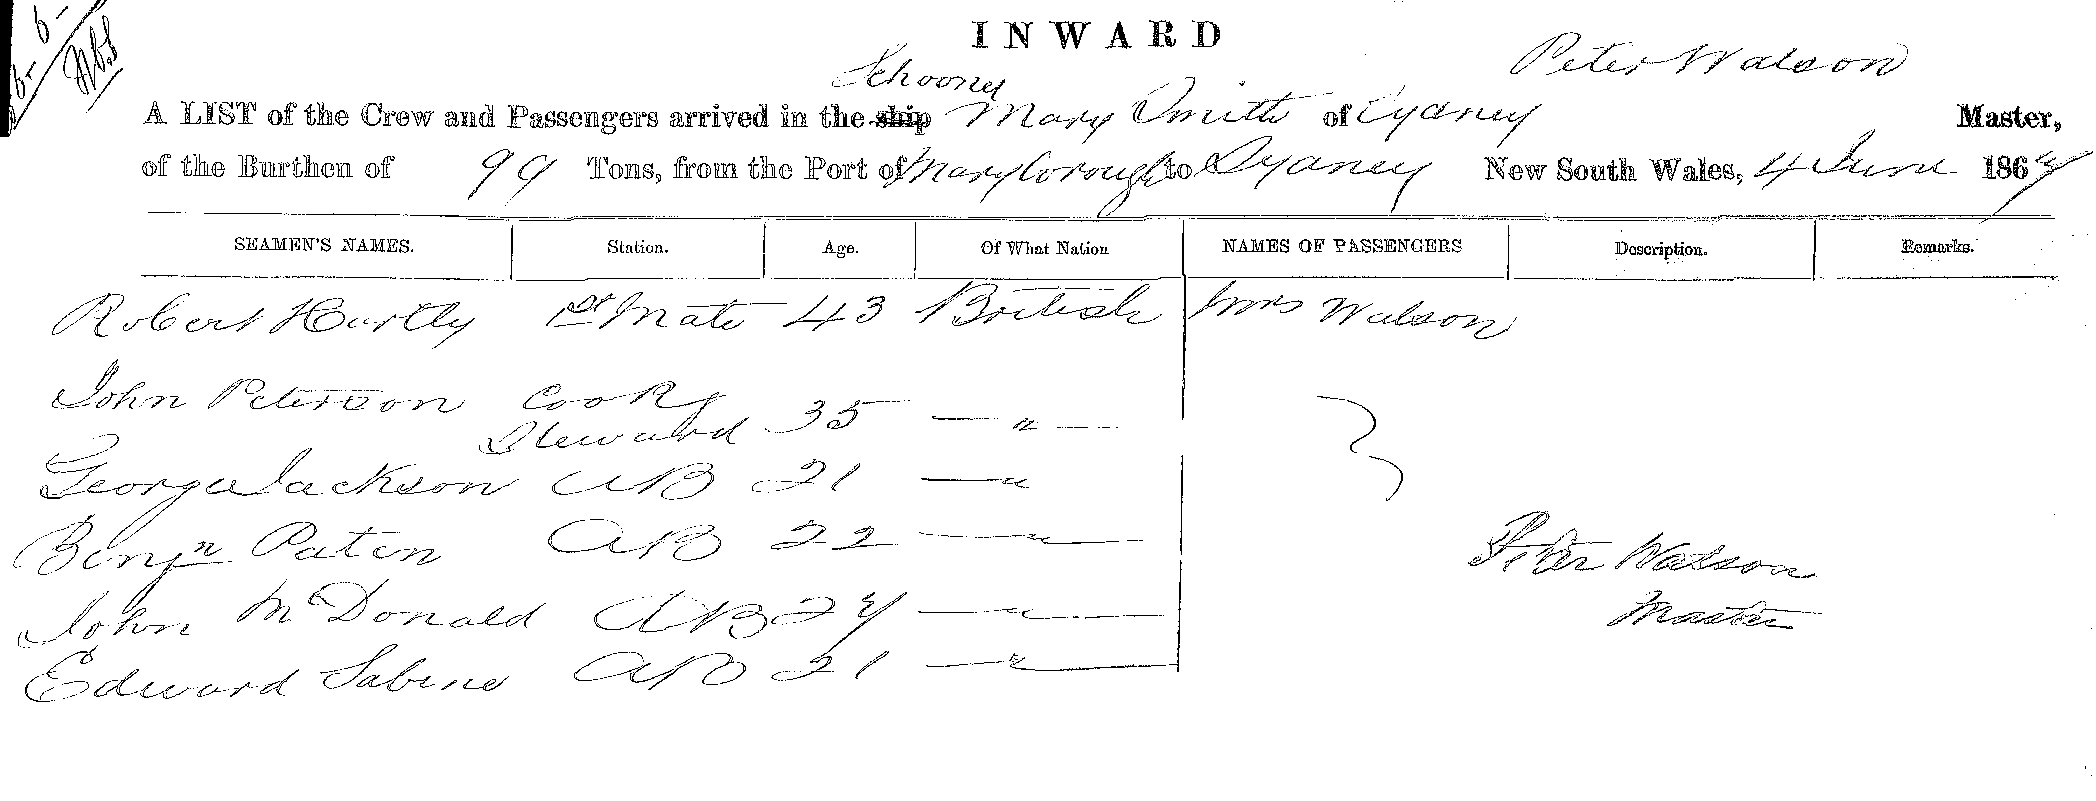 INWARD
Schooner
Peter Watson
A LIST of the Crew and Passengers arrived in the ship Mary Smith of Sydney Master,
of the Burthen of 99 Tons, from the Port of Maryborough to Sydney New South Wales, 4 June 1864
SEAMEN'S NAMES. Station. Age. Of What Nation NAMES OF PASSENGERS Description. Remarks.
Robert Hartly 1st Mate 43 British Mrs Watson
John Peterson Cook &
Steward 35 — " —
George Jackson AB 21 — "
Benjn Paten AB 22 — " —
John McDonald AB 24 — " —
Edward Sabine AB 21 — " —
Peter Watson
Master